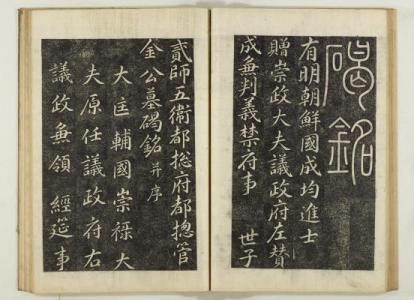 碣銘
有明朝鮮國成均進士
贈崇政大夫議政府左贊
成兼判義禁府事 世子
貳師五衛都摠府都摠管
金公墓碣銘 并序
大匡輔國崇祿大
夫原任議政府右
議政兼領 經筵事